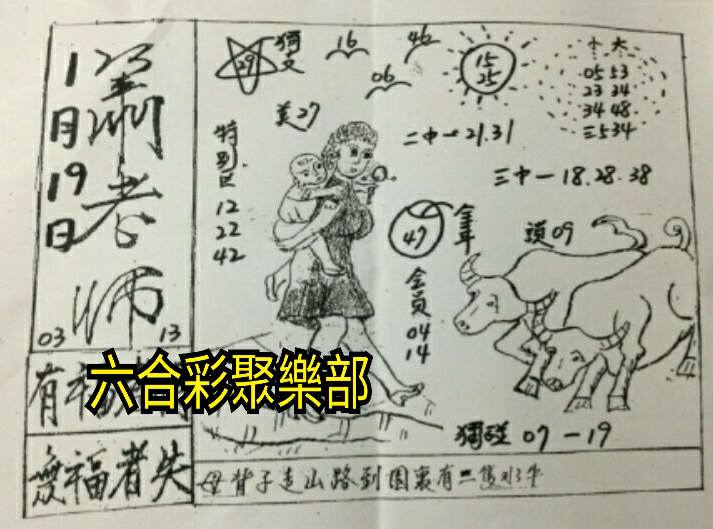 1月19日
蕭老师
03
13
有福
六合彩聚樂部
無福者失
29
獨支
16
46
06
15
25
小 大
05 53
23 34
34 48
三5 34
美27
二中一21.31
三中一18.28.38
特别区
12
22
42
47
全年
頭09
会员
04
14
獨碰 07-19
母背子走山路到園裏有二隻水牛